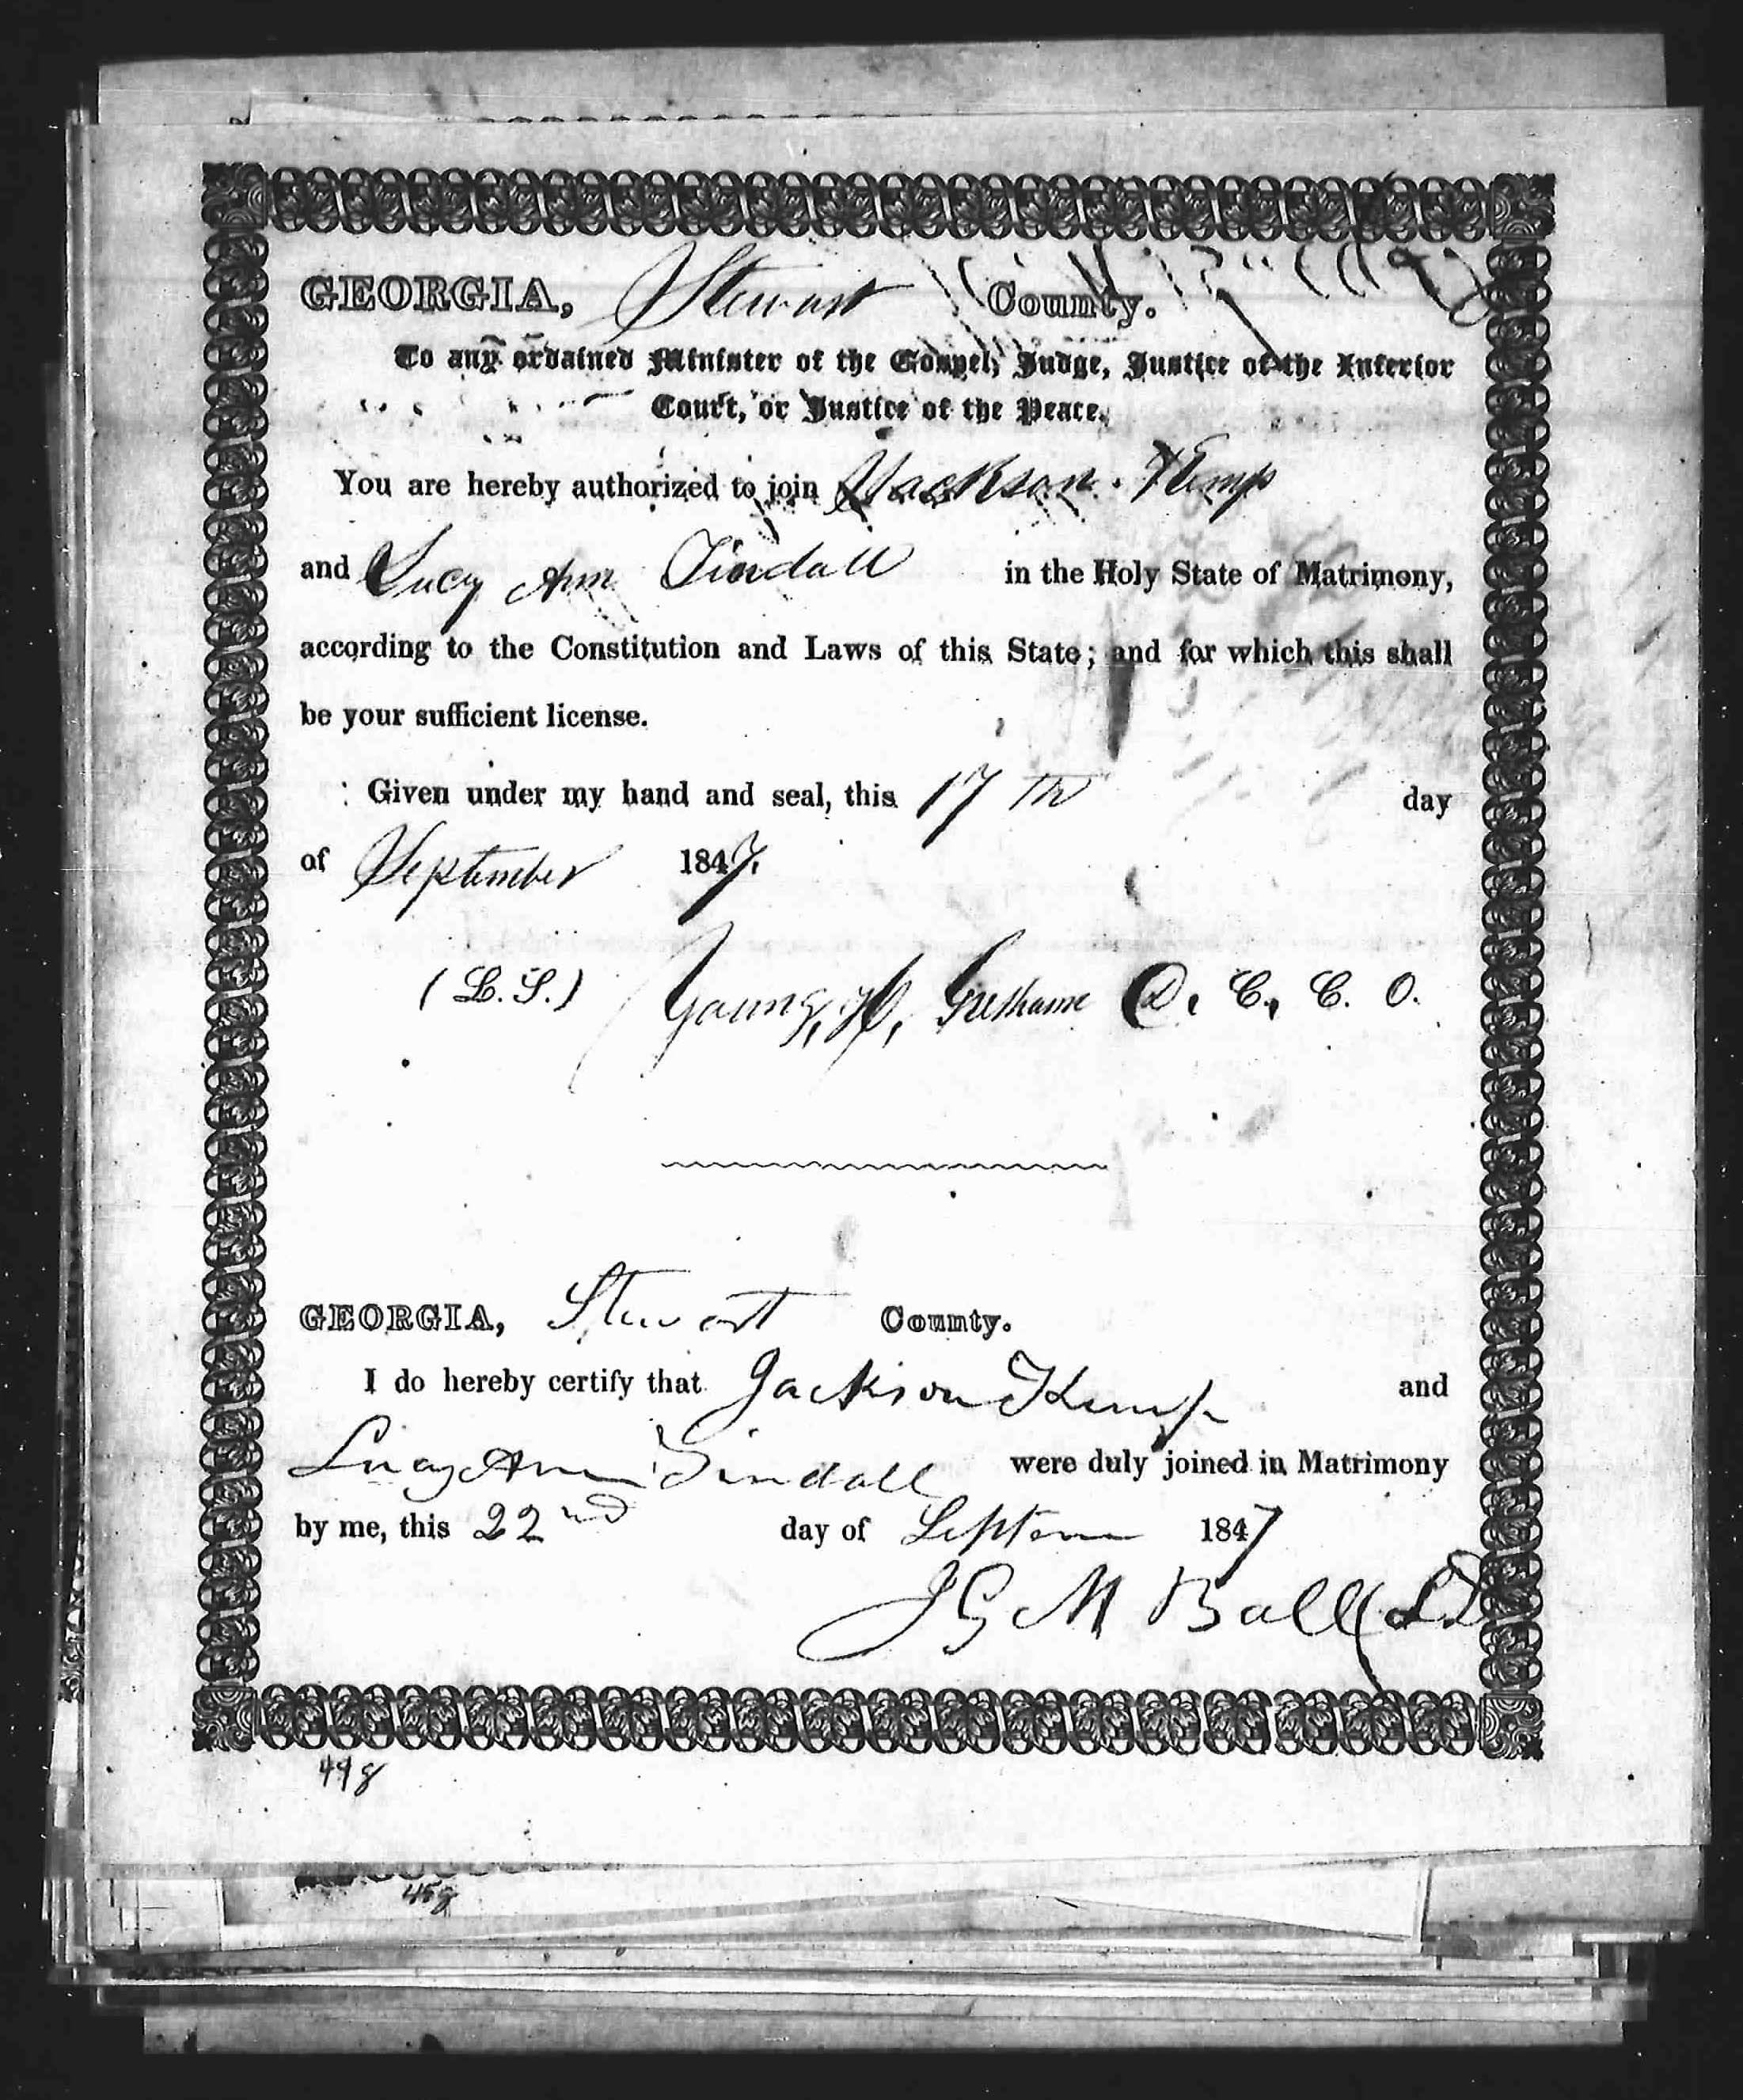 GEORGIA, Stewart County.
To any ordained Minister of the Gospel, Judge, Justice of the Inferior
Court, or Justice of the Peace.
You are hereby authorized to join Jackson Kemp
and Lucy Ann Tindall in the Holy State of Matrimony,
according to the Constitution and Laws of this State; and for which this shall
be your sufficient license.
Given under my hand and seal, this 17th day
of September 1847.
(L.S.) Young, H, Gresham D. C. C. O.
GEORGIA, Stewart County.
I do hereby certify that Jackson Kemp and
Lucy Ann Tindall were duly joined in Matrimony
by me, this 22nd day of Septem 1847
J G M Ball
498